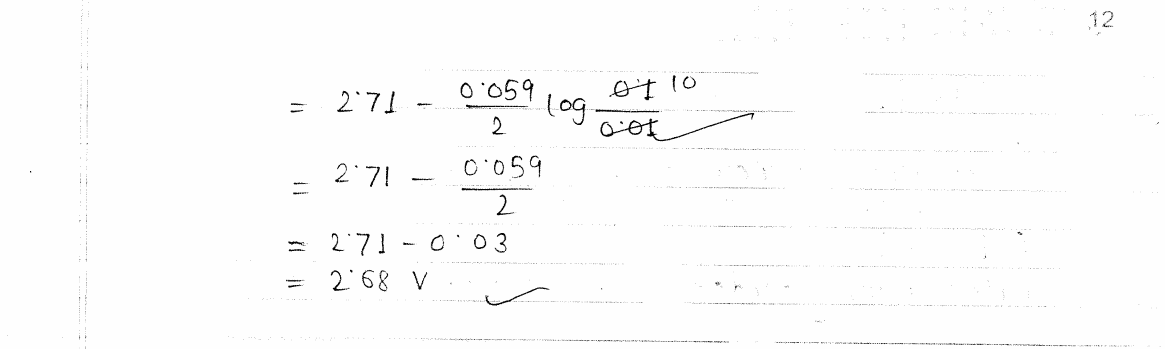 12
= 2·71 - 0·059/2 log 0·1/0·01 10
= 2·71 - 0·059/2
= 2·71 - 0·03
= 2·68 V